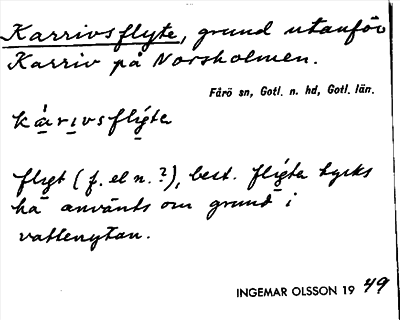 Karrivsflyte, grund utanför
Karriv på Norsholmen.
Fårö sn, Gotl. n. hd, Gotl. län.
kàrivsflýta
flyt (f. el n.?), best. flýta tycks
ha använts om grund i
vattenytan.
INGEMAR OLSSON 19 49